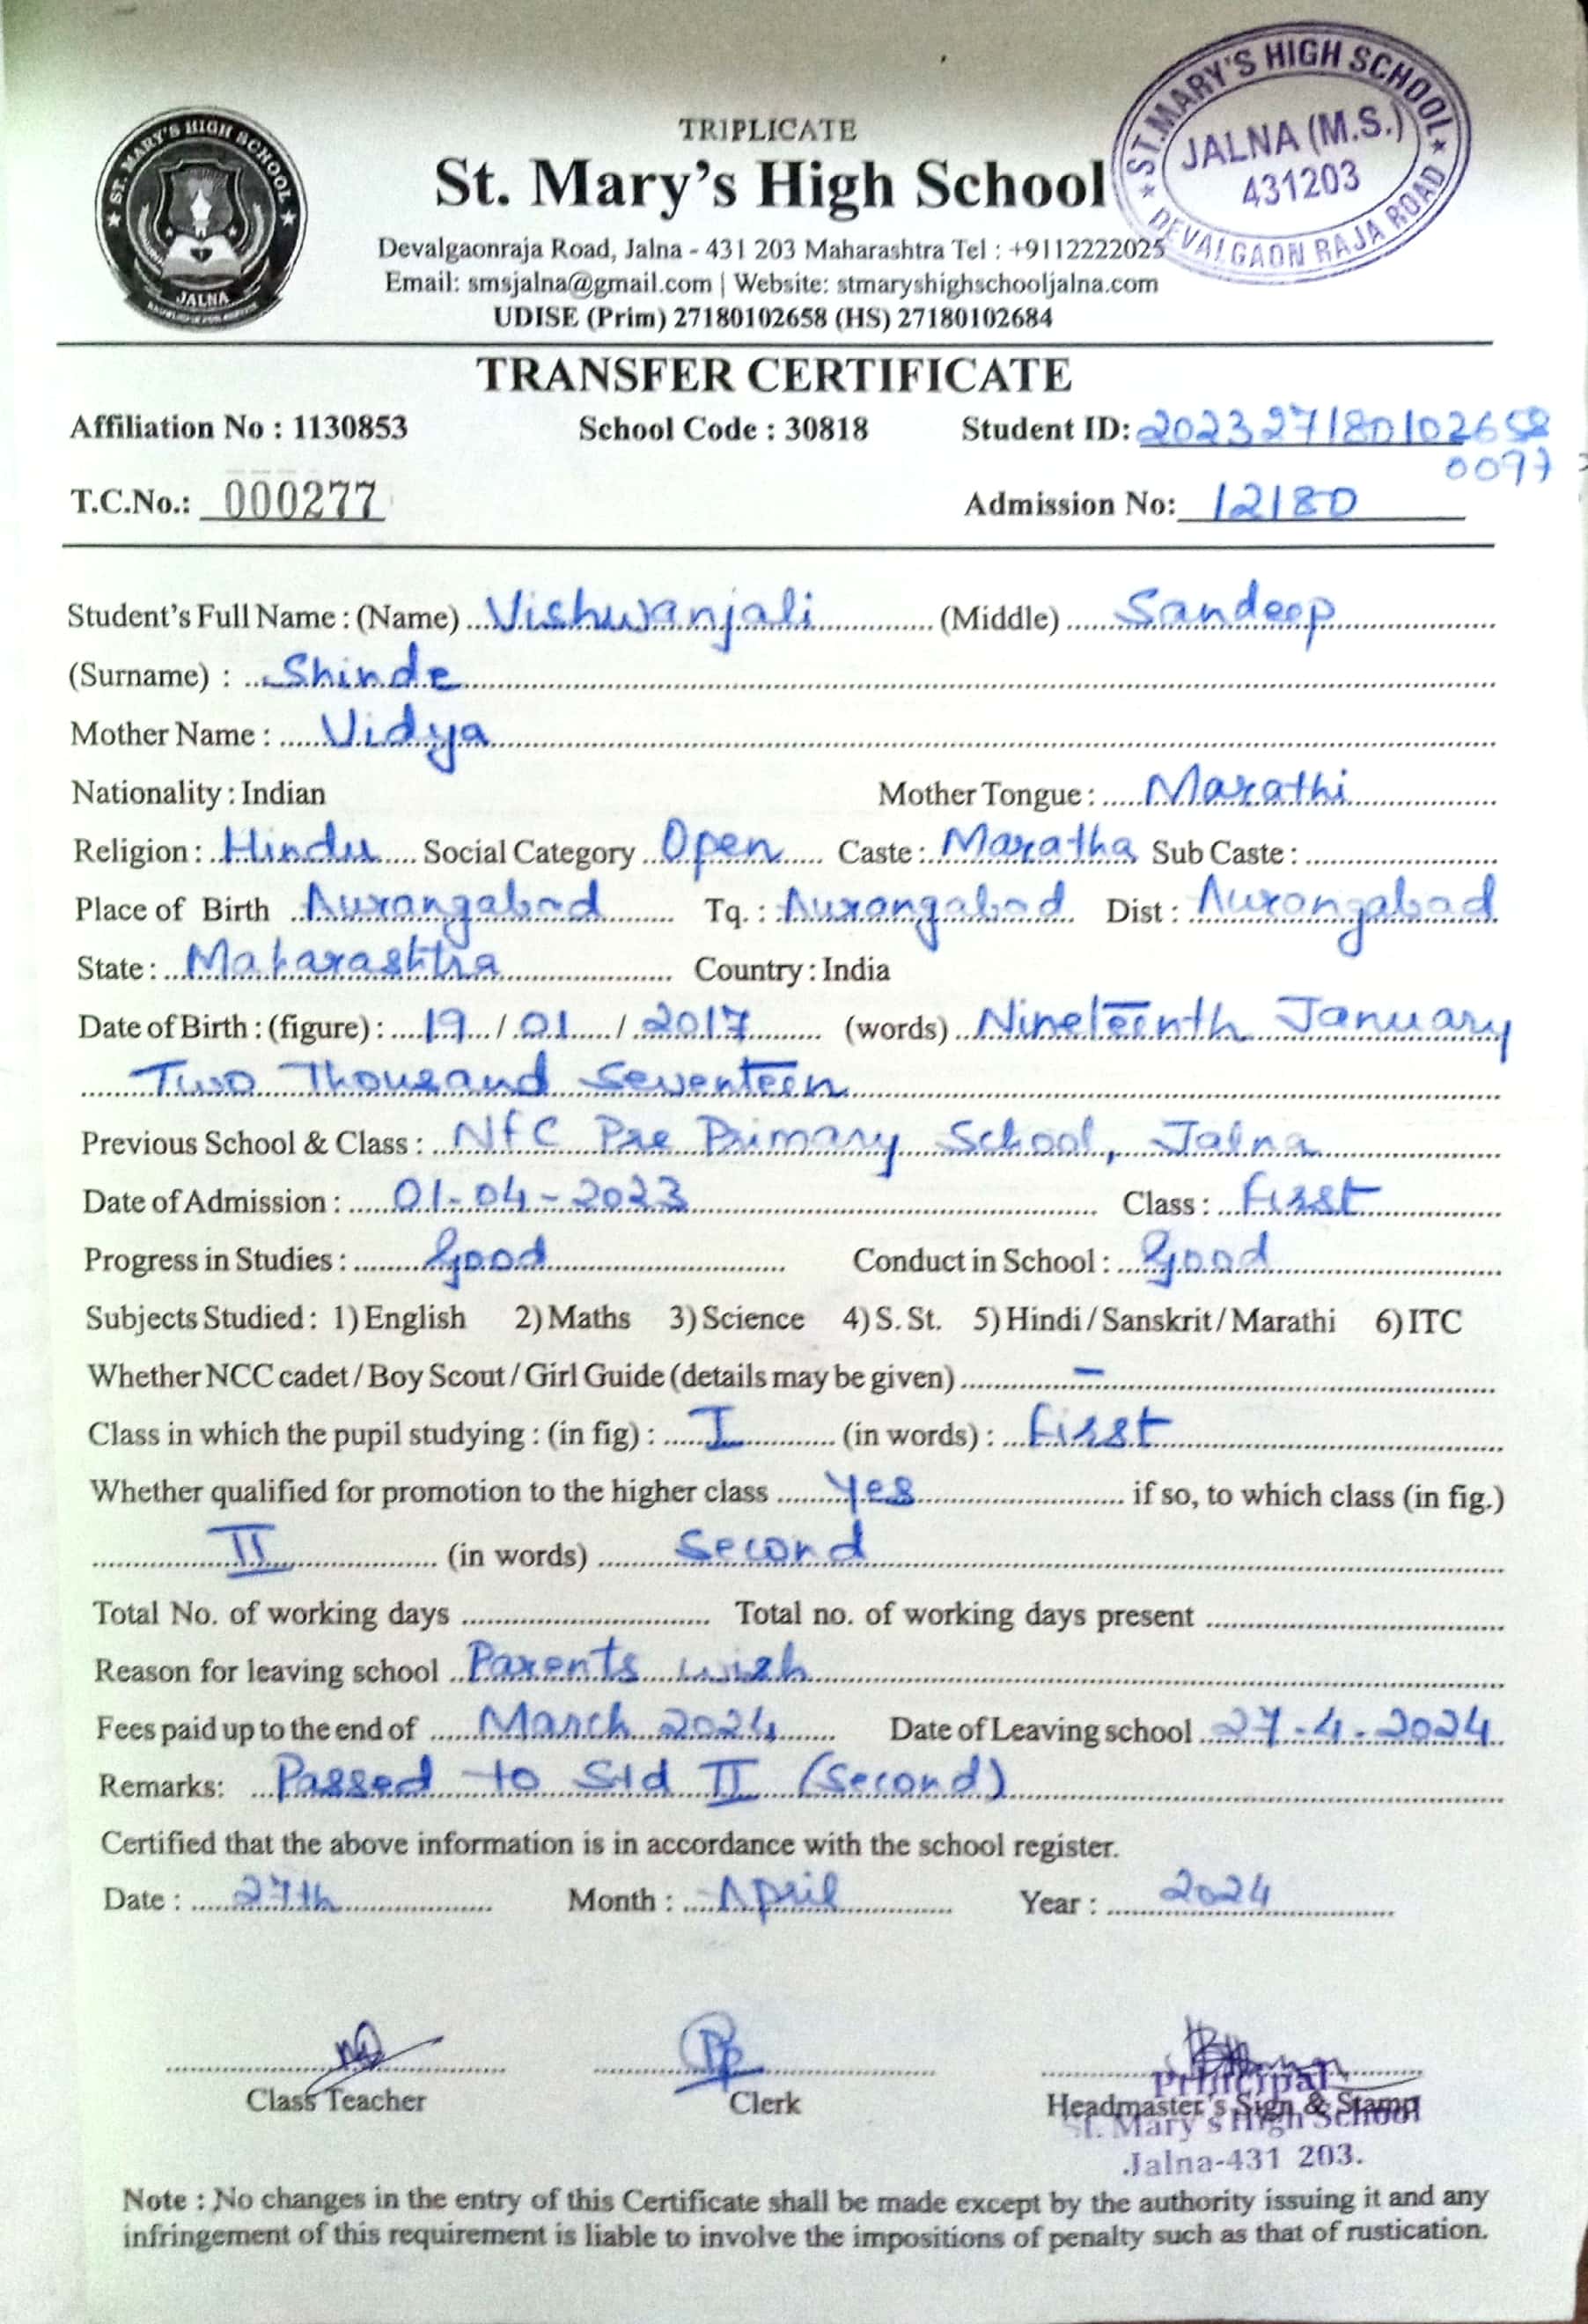 ST. MARY'S HIGH SCHOOL
JALNA
TRIPLICATE
St. Mary's High School
★ ST.MARY'S HIGH SCHOOL ★
JALNA (M.S.)
431203
DEVALGAON RAJA ROAD
Devalgaonraja Road, Jalna - 431 203 Maharashtra Tel : +9112222025
Email: smsjalna@gmail.com | Website: stmaryshighschooljalna.com
UDISE (Prim) 27180102658 (HS) 27180102684
TRANSFER CERTIFICATE
Affiliation No : 1130853 School Code : 30818 Student ID: 202327180102658
0097
T.C.No.: 000277 Admission No: 12180
Student's Full Name : (Name) Vishwanjali (Middle) Sandeep
(Surname) : Shinde
Mother Name : Vidya
Nationality : Indian Mother Tongue : Marathi
Religion : Hindu Social Category Open Caste : Maratha Sub Caste :
Place of Birth Aurangabad Tq. : Aurangabad Dist : Aurangabad
State : Maharashtra Country : India
Date of Birth : (figure) : 19 / 01 / 2017 (words) Nineteenth January
Two Thousand Seventeen
Previous School & Class : NFC Pre Primary School, Jalna
Date of Admission : 01-04-2023 Class : First
Progress in Studies : Good Conduct in School : Good
Subjects Studied : 1) English 2) Maths 3) Science 4) S. St. 5) Hindi / Sanskrit / Marathi 6) ITC
Whether NCC cadet / Boy Scout / Girl Guide (details may be given) -
Class in which the pupil studying : (in fig) : I (in words) : First
Whether qualified for promotion to the higher class Yes if so, to which class (in fig.)
II (in words) Second
Total No. of working days Total no. of working days present
Reason for leaving school Parents wish
Fees paid up to the end of March 2024 Date of Leaving school 27-4-2024
Remarks: Passed to Std II (Second)
Certified that the above information is in accordance with the school register.
Date : 27th Month : April Year : 2024
Class Teacher Clerk Headmaster's Sign & Stamp
Principal
St. Mary's High School
Jalna-431 203.
Note : No changes in the entry of this Certificate shall be made except by the authority issuing it and any
infringement of this requirement is liable to involve the impositions of penalty such as that of rustication.